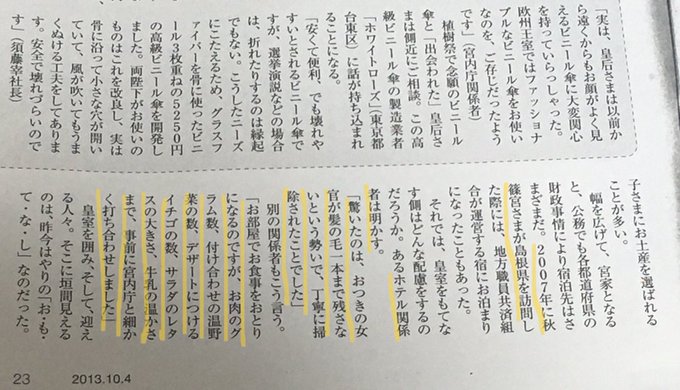 「実は、皇后さまは以前か
ら遠くからもお顔がよく見
えるビニール傘に大変関心
を持っていらっしゃった。
欧州王室ではファッショナ
ブルなビニール傘をお使い
なのを、ご存じだったよう
です」(宮内庁関係者)
植樹祭で念願のビニール
傘と〝出会われた〟皇后さ
まは側近にご相談。この高
級ビニール傘の製造業者
「ホワイトローズ」(東京都
台東区)に話が持ち込まれ
ることになる。
「安くて便利、でも壊れや
すいとされるビニール傘で
すが、選挙演説などの場合
は、折れたりするのは縁起
でもない。こうしたニーズ
にこたえるため、グラスフ
ァイバーを骨に使ったビニ
ール3枚重ねの5250円
の高級ビニール傘を開発し
ました。両陛下がお使いの
ものはこれを改良し、実は
骨に沿って小さな穴が開い
ていて、風が吹いてもうま
くぬける工夫をしてありま
す。安全で壊れづらいので
す」(須藤宰社長)
子さまにお土産を選ばれる
ことが多い。
幅を広げて、宮家となる
と、公務でも各都道府県の
財政事情により宿泊先はさ
まざまだ。2007年に秋
篠宮さまが島根県を訪問し
た際には、地方職員共済組
合が運営する宿にお泊まり
になったこともあった。
それでは、皇室をもてな
す側はどんな配慮をするの
だろうか。あるホテル関係
者は明かす。
「驚いたのは、おつきの女
官が髪の毛一本まで残さな
いという勢いで、丁寧に掃
除されたことでした」
別の関係者もこう言う。
「お部屋でお食事をおとり
になるのですが、お肉のグ
ラム数、付け合わせの温野
菜の数、デザートにつける
イチゴの数、サラダのレタ
スの大きさ、牛乳の温かさ
まで、事前に宮内庁と細か
く打ち合わせしました」
皇室を囲み、そして、迎え
る人々。そこに垣間見える
のは、昨今はやりの「お・も・
て・な・し」なのだった。
23 2013.10.4